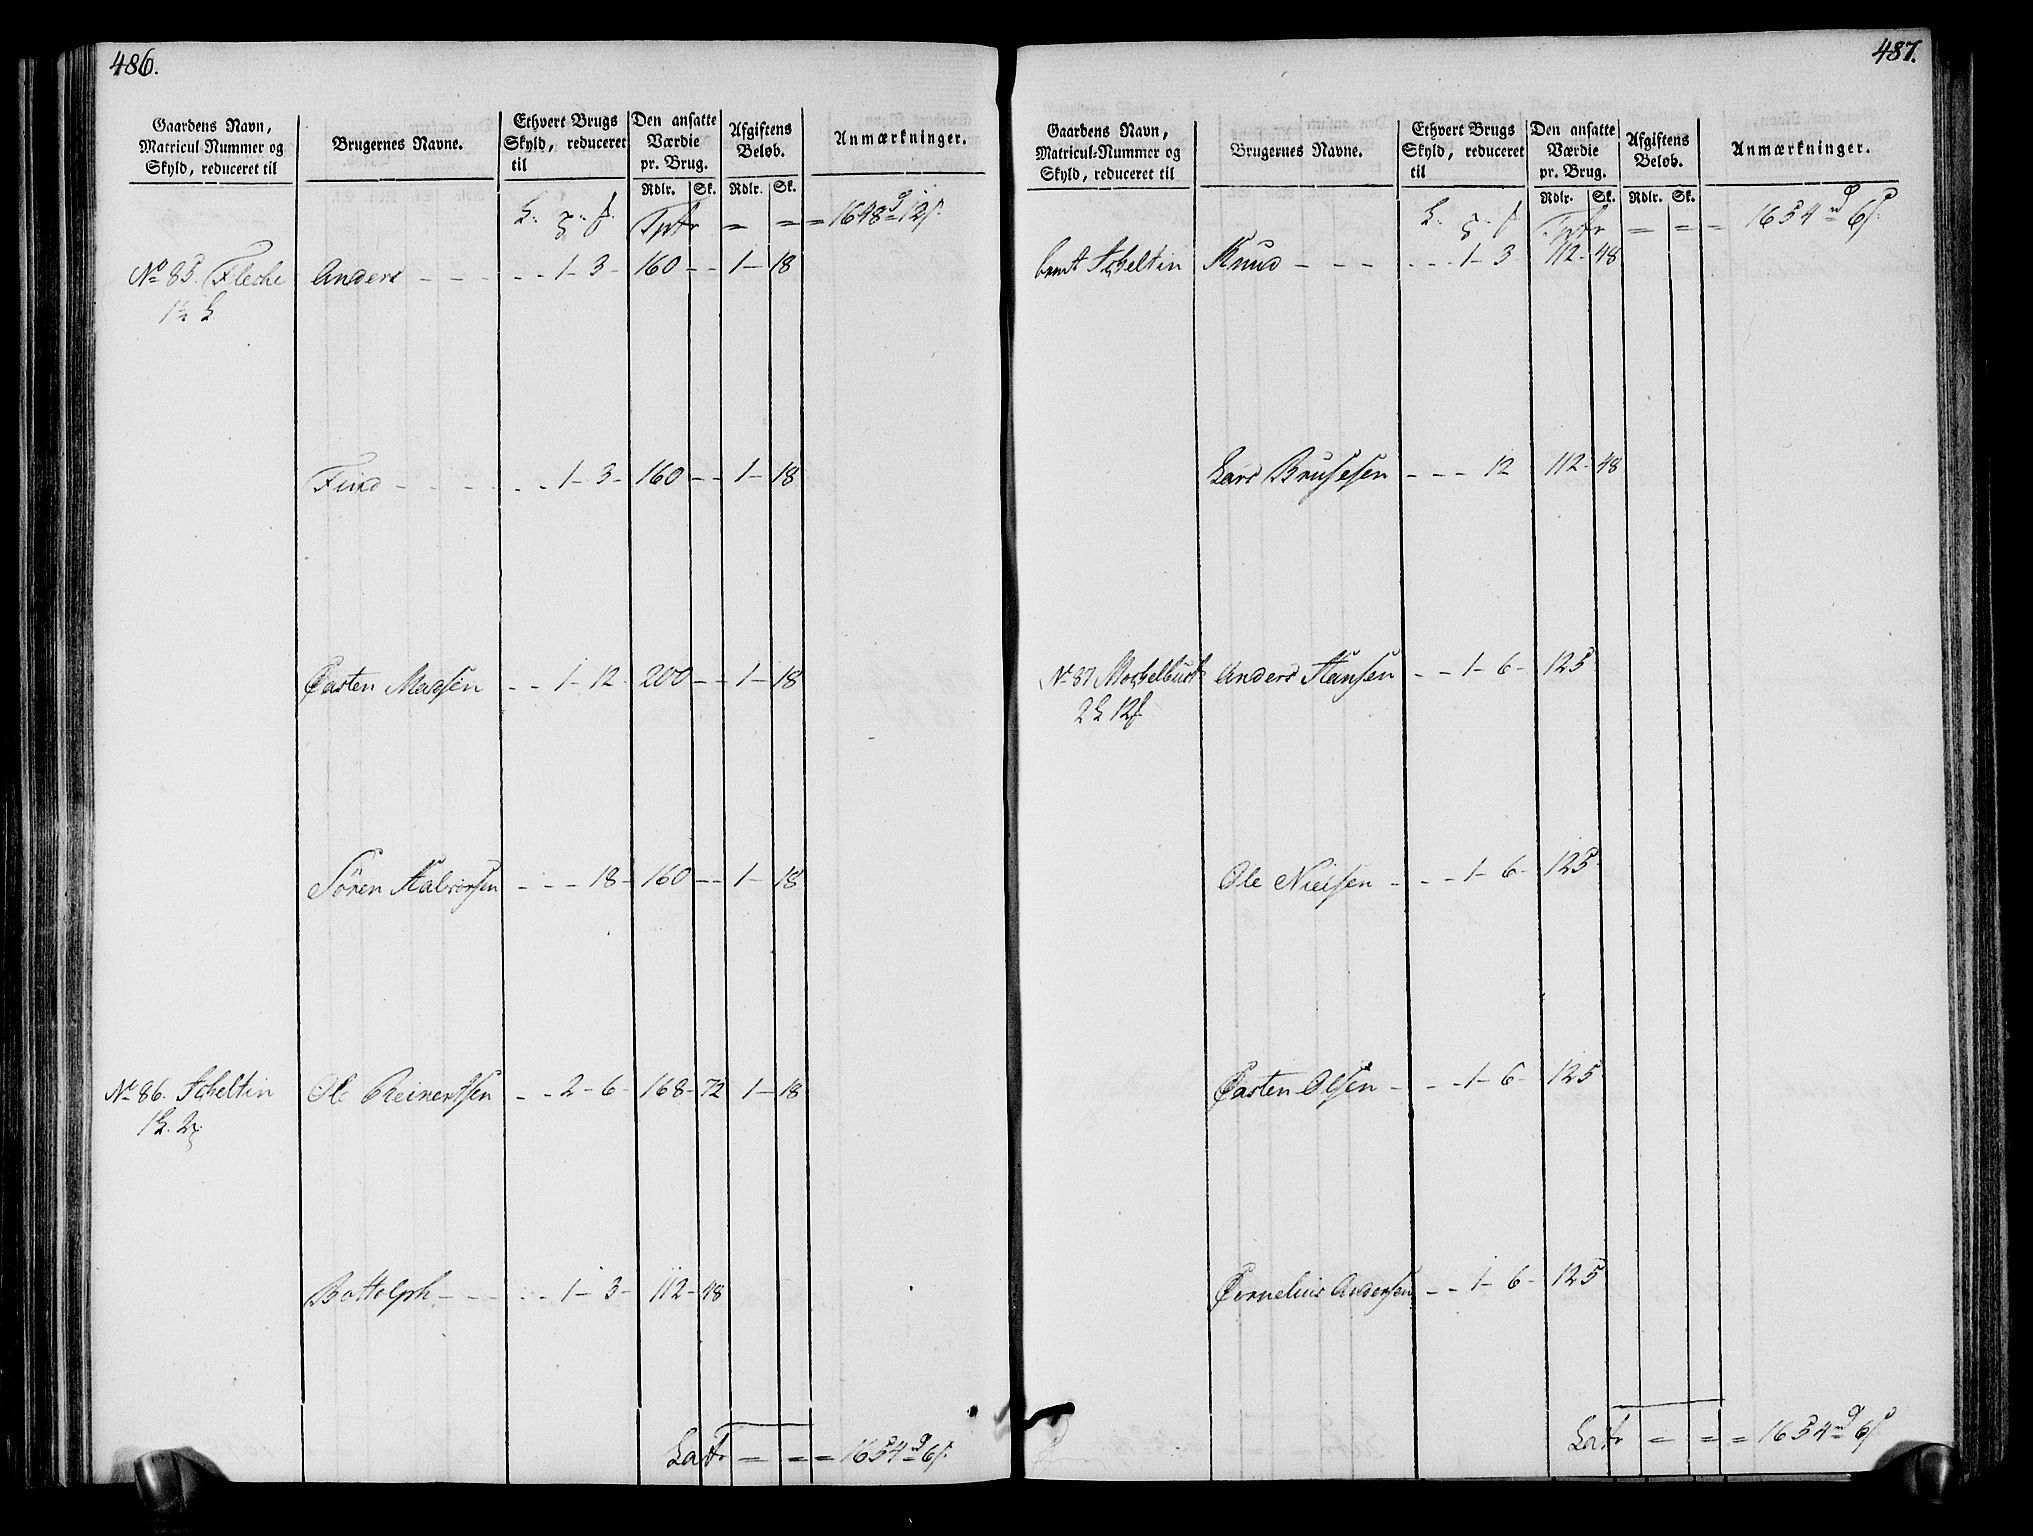 486.
Gaardens Navn, Matricul Nummer og Skyld, reduceret til | Brugernes Navne. | Ethvert Brugs Skyld, reduceret til | Den ansatte Værdie pr. Brug. Rdlr. Sk. | Afgiftens Beløb. Rdlr. Sk. | Anmærkninger.
Tptr = = = 1648 rd 12 s.
No 85. Fleche Anders - - - - - 1 - 3 - 160 - - 1 - 18
Find - - - - - - 1 - 3 - 160 - - 1 - 18
Casten Madsen - - 1 - 12 - 200 - - 1 - 18
Sören Halvorsen - - - 18 - 160 - - 1 - 18
No 86. Ole Reinertsen - - 2 - 6 - 168 - 72 1 - 18
Bottolph - - - - - 1 - 3 - 112 - 48
Latr = = = 1654 rd 6 s.
487.
Gaardens Navn, Matricul-Nummer og Skyld, reduceret til | Brugernes Navne. | Ethvert Brugs Skyld, reduceret til | Den ansatte Værdie pr. Brug. Rdlr. Sk. | Afgiftens Beløb. Rdlr. Sk. | Anmærkninger.
Tptr = = = 1654 rd 6 s.
Knud - - - - - - 1 - 3 112 - 48
Lars Brusesen - - - 12 112 - 48
No 87 Anders Hansen - - 1 - 6 - 125
Ole Nielsen - - - 1 - 6 - 125
Casten Olsen - - - 1 - 6 - 125
Cornelius Andersen - - 1 - 6 - 125
Latr = = = 1654 rd 6 s.